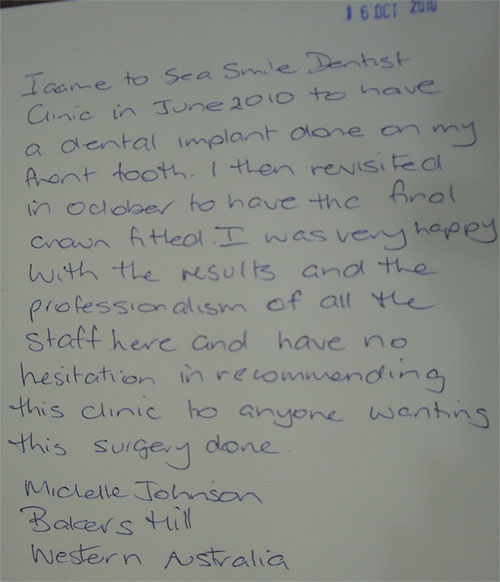 16 OCT 2010
I came to Sea Smile Dentist
Clinic in June 2010 to have
a dental implant done on my
front tooth. I then revisited
in October to have the final
crown fitted. I was very happy
with the results and the
professionalism of all the
staff here and have no
hesitation in recommending
this clinic to anyone wanting
this surgery done.
Michelle Johnson
Bakers Hill
Western Australia